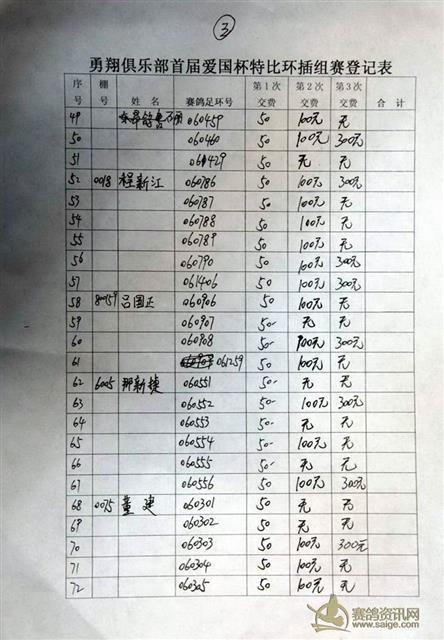 ③
勇翔俱乐部首届爱国杯特比环插组赛登记表
序号 棚号 姓名 赛鸽足环号 第1次交费 第2次交费 第3次交费 合计
49 060459 50 100元 无
50 060460 50 100元 300元
51 061429 50 无 无
52 0018 程新江 060786 50 100元 300元
53 060787 50 100元 无
54 060788 50 100元 无
55 060789 50 100元 无
56 060790 50 100元 300元
57 061406 50 100元 300元
58 80159 吕国正 060906 50 100元 无
59 060907 50 无 无
60 060908 50 100元 300元
61 061259 50 无 无
62 6005 那新捷 060551 50 无 无
63 060552 50 100元 300元
64 060553 50 无 无
65 060554 50 100元 无
66 060555 50 无 无
67 060556 50 100元 300元
68 0075 董建 060301 50 无 无
69 060302 50 无 无
70 060303 50 100元 300元
71 060304 50 100元 无
72 060305 50 100元 无
赛鸽资讯网
www.saige.com